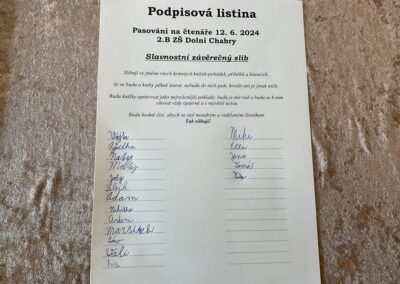 Podpisová listina
Pasování na čtenáře 12. 6. 2024
2.B ZŠ Dolní Chabry
Slavnostní závěrečný slib
Slibuji ve jménu všech krásných knížek-pohádek, příběhů a básniček,
že se budu o knihy pěkně starat, nebudu do nich psát, kreslit ani je jinak ničit.
Budu knížky opatrovat jako nejvzácnější poklady, budu je mít rád a budu se k nim
chovat vždy opatrně a s největší úctou.
Budu hodně číst, abych se stal moudrým a vzdělaným člověkem.
Tak slibuji!
Vojta
Anetka
Matty
Jody
Adam
Antem
Váli
Iva
Miki
Ella
Tomáš